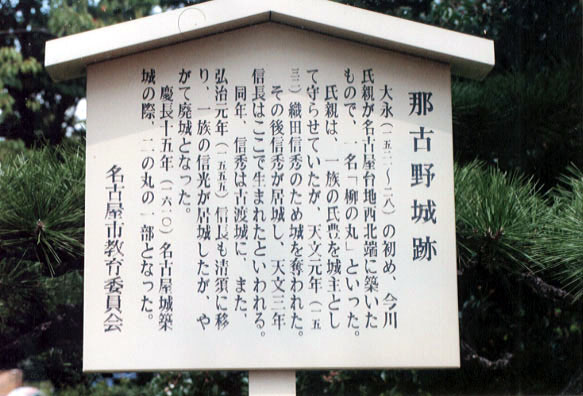 那古野城跡
大永(一五二一〜二八)の初め、今川
氏親が名古屋台地西北端に築いた
もので、一名「柳の丸」といった。
氏親は、一族の氏豊を城主とし
て守らせていたが、天文元年(一五
三二)織田信秀のため城を奪われた。
その後信秀が居城し、天文三年
信長はここで生まれたといわれる。
同年、信秀は古渡城に、また、
弘治元年(一五五五)信長も清須に移
り、一族の信光が居城したが、や
がて廃城となった。
慶長十五年(一六一〇)名古屋城築
城の際、二の丸の一部となった。
名古屋市教育委員会